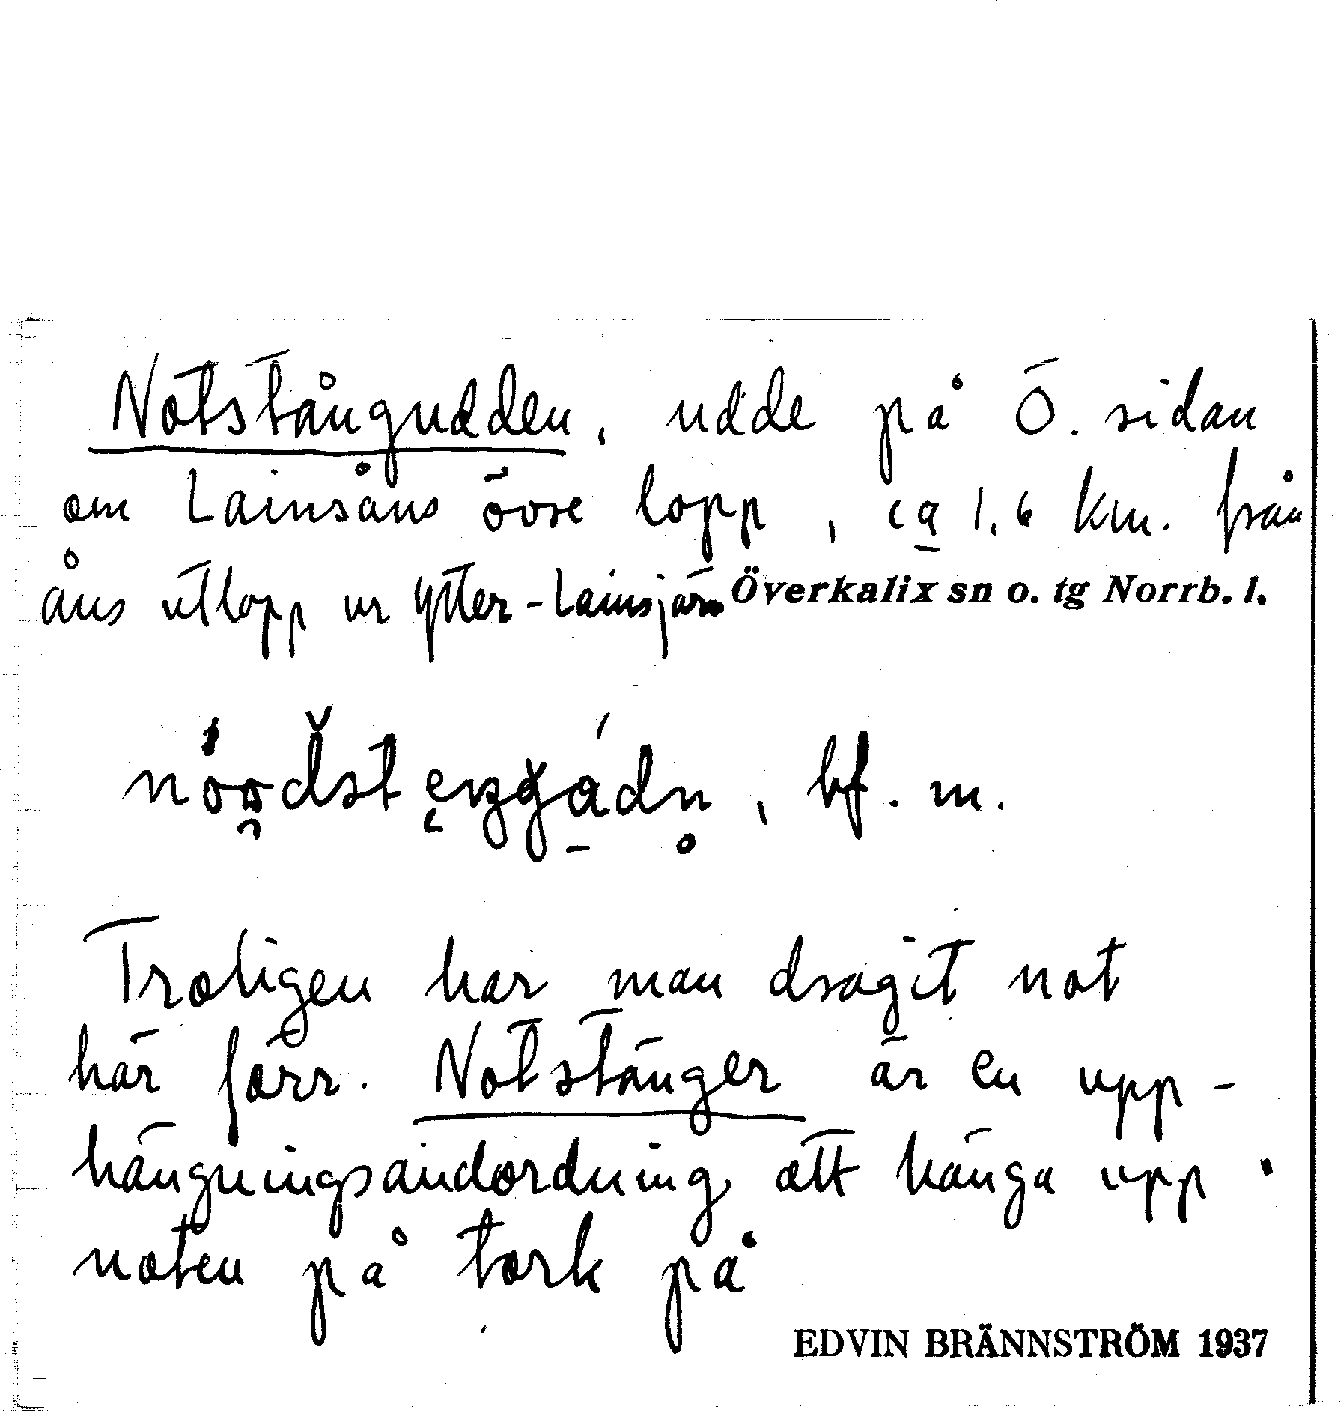 Notstångudden, udde på Ö. sidan
om Lainsåns övre lopp, ca 1,6 km. från
åns utlopp ur Ytter-Lainsjärv Överkalix sn o. tg Norrb. l.
bf. m.
Troligen har man dragit not
här förr. Notstänger är en upp-
hängningsandordning att hänga upp
noten på tork på
EDVIN BRÄNNSTRÖM 1937